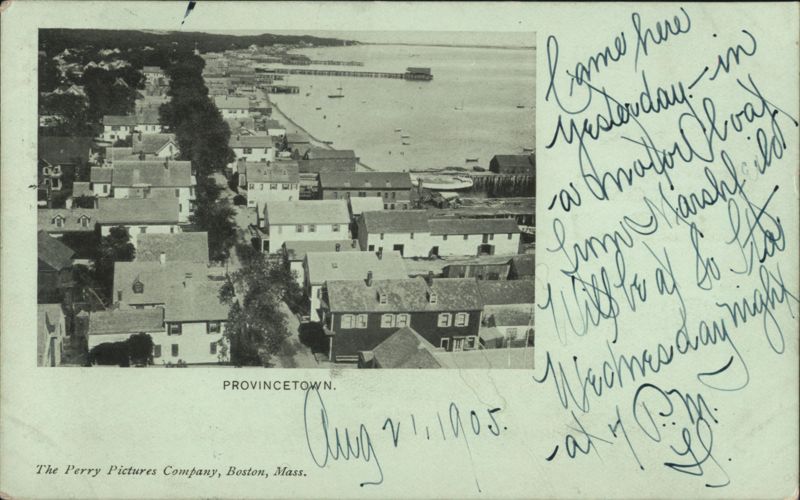 PROVINCETOWN.
The Perry Pictures Company, Boston, Mass.
Aug 21, 1905.
Came here
yesterday - in
a motor boat
from Marshfield
Will be at So Sta
Wednesday night
at 7 P.M.